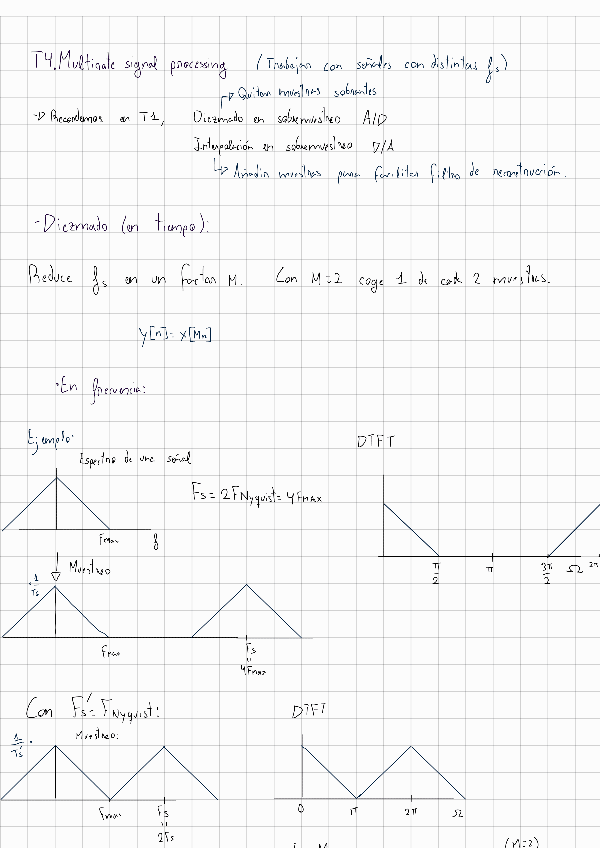 T4. Multirate signal processing (Trabajar con señales con distintas fs)
Quitar muestras sobrantes
-▷ Recordemos en T1, Diezmado en sobremuestreo A/D
Interpolación en sobremuestreo D/A
Añadir muestras para facilitar filtro de reconstrucción.
- Diezmado (en tiempo):
Reduce fs en un factor M. Con M=2 coge 1 de cada 2 muestras.
y[n] = x[Mn]
· En frecuencia:
Ejemplo:
DTFT
Espectro de una señal
Fs = 2FNyquist = 4Fmax
Fmax f
π/2 π 3π/2 Ω 2π
Muestreo
1/Ts
Fmax Fs
"
4Fmax
Con Fs' = FNyquist:
DTFT
1/Ts'
Muestreo:
Fmax Fs
"
2Fs
0 π 2π Ω
M (M=2)